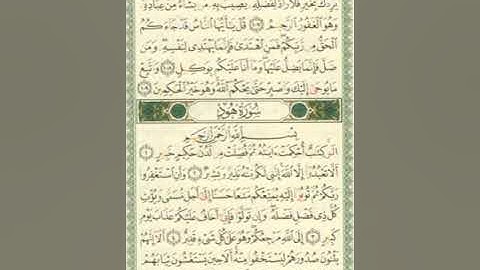 يُرِدْكَ بِخَيْرٍ فَلَا رَادَّ لِفَضْلِهِ يُصِيبُ بِهِ مَن يَشَاءُ مِنْ عِبَادِهِ
وَهُوَ الْغَفُورُ الرَّحِيمُ ﴿١٠٧﴾ قُلْ يَا أَيُّهَا النَّاسُ قَدْ جَاءَكُمُ
الْحَقُّ مِن رَّبِّكُمْ فَمَنِ اهْتَدَىٰ فَإِنَّمَا يَهْتَدِي لِنَفْسِهِ وَمَن
ضَلَّ فَإِنَّمَا يَضِلُّ عَلَيْهَا وَمَا أَنَا عَلَيْكُم بِوَكِيلٍ ﴿١٠٨﴾ وَاتَّبِعْ
مَا يُوحَىٰ إِلَيْكَ وَاصْبِرْ حَتَّىٰ يَحْكُمَ اللَّهُ وَهُوَ خَيْرُ الْحَاكِمِينَ ﴿١٠٩﴾
سُورَةُ هُودٍ
بِسْمِ اللَّهِ الرَّحْمَٰنِ الرَّحِيمِ
الر كِتَابٌ أُحْكِمَتْ آيَاتُهُ ثُمَّ فُصِّلَتْ مِن لَّدُنْ حَكِيمٍ خَبِيرٍ ﴿١﴾
أَلَّا تَعْبُدُوا إِلَّا اللَّهَ إِنَّنِي لَكُم مِّنْهُ نَذِيرٌ وَبَشِيرٌ ﴿٢﴾ وَأَنِ اسْتَغْفِرُوا
رَبَّكُمْ ثُمَّ تُوبُوا إِلَيْهِ يُمَتِّعْكُم مَّتَاعًا حَسَنًا إِلَىٰ أَجَلٍ مُّسَمًّى وَيُؤْتِ
كُلَّ ذِي فَضْلٍ فَضْلَهُ وَإِن تَوَلَّوْا فَإِنِّي أَخَافُ عَلَيْكُمْ عَذَابَ يَوْمٍ
كَبِيرٍ ﴿٣﴾ إِلَى اللَّهِ مَرْجِعُكُمْ وَهُوَ عَلَىٰ كُلِّ شَيْءٍ قَدِيرٌ ﴿٤﴾ أَلَا إِنَّهُمْ
يَثْنُونَ صُدُورَهُمْ لِيَسْتَخْفُوا مِنْهُ أَلَا حِينَ يَسْتَغْشُونَ ثِيَابَهُمْ